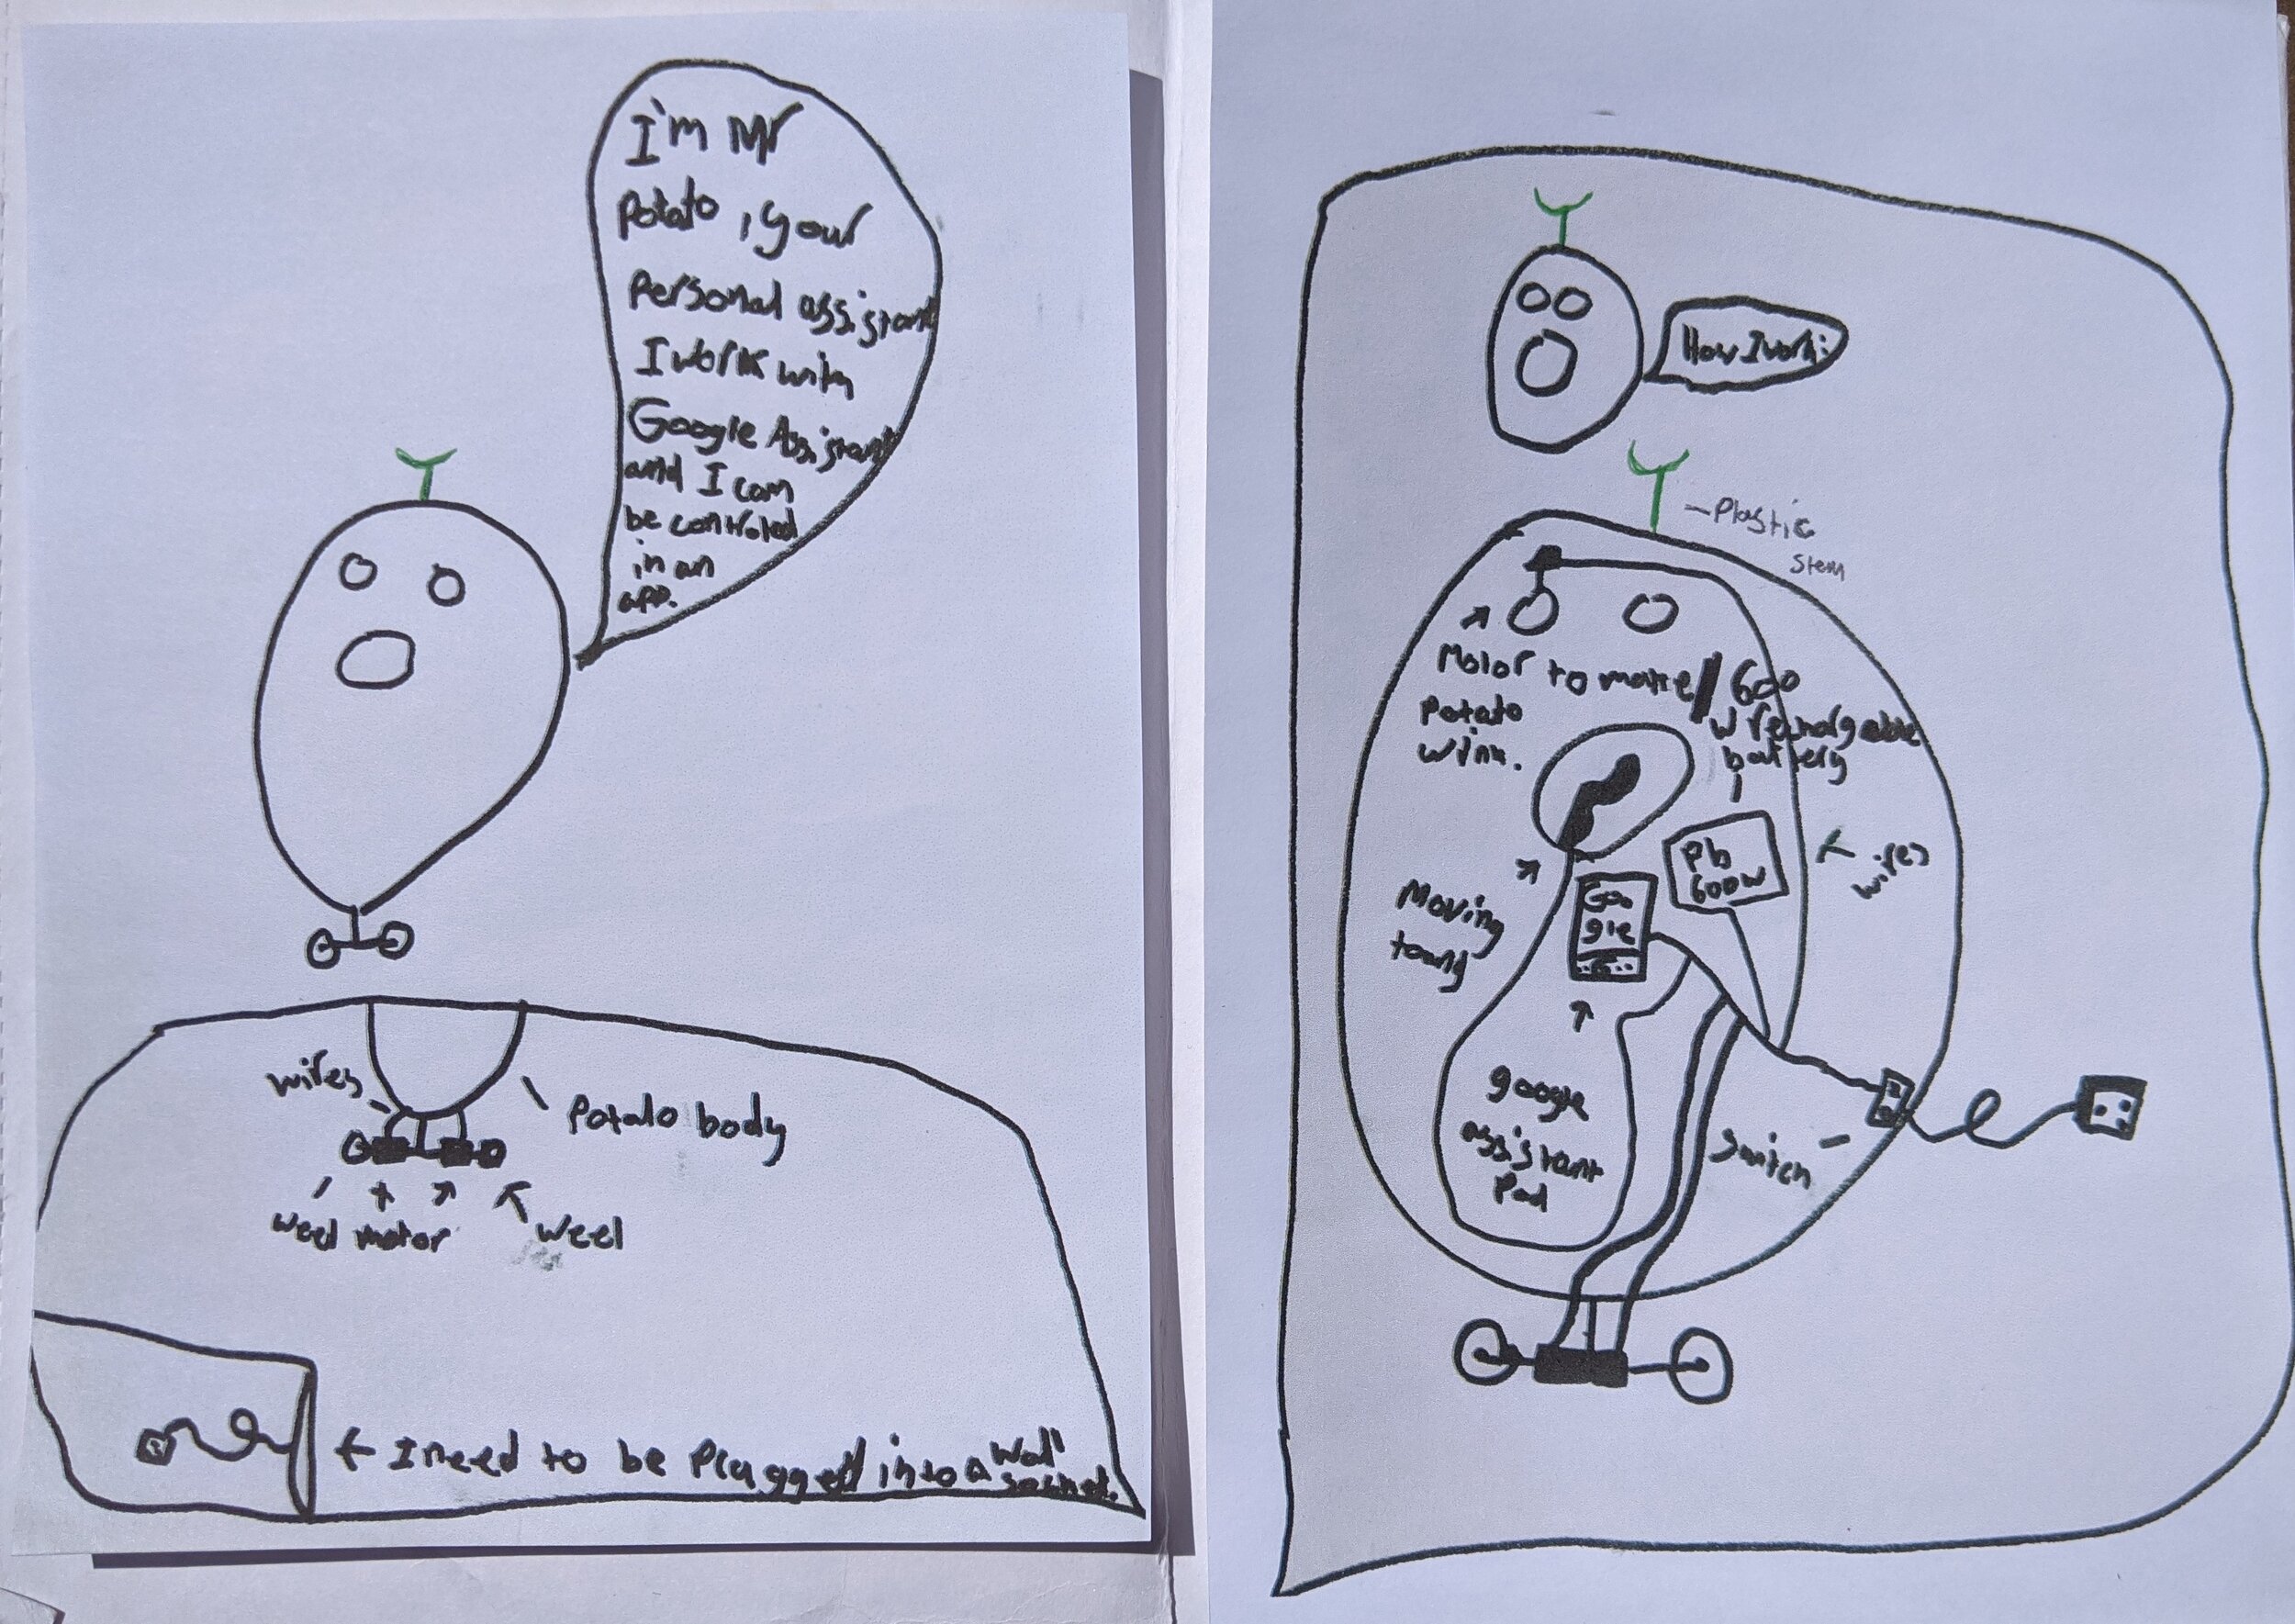 I'm Mr
Potato, your
Personal assistant
I work with
Google Assistant
and I can
be controled
in an
app.
wires
Potato body
weel motor
weel
I need to be plugged into a wall
socket.
How I work:
Plastic
stem
Motor to make
Potato
wink.
600
w rechargeable
battery
Pb
600w
wires
Moving
toung
Goo
gle
google
assistant
Pad
switch